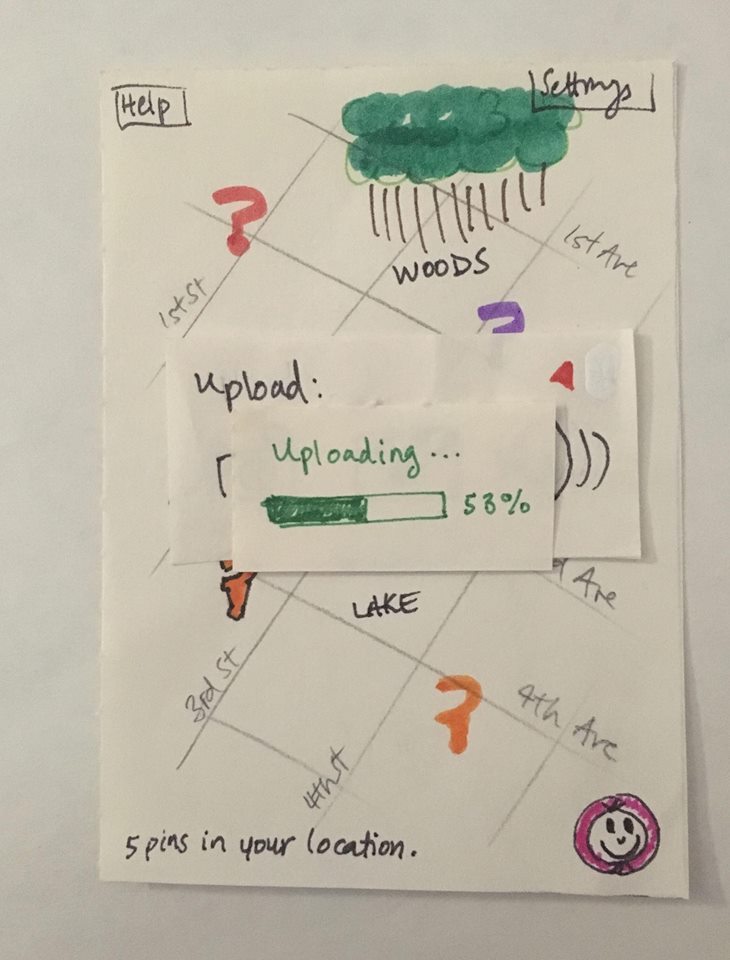 Help
Settings
1st Ave
WOODS
1st St
Upload:
Uploading...
53%
Ave
LAKE
3rd St
4th Ave
4th St
5 pins in your location.